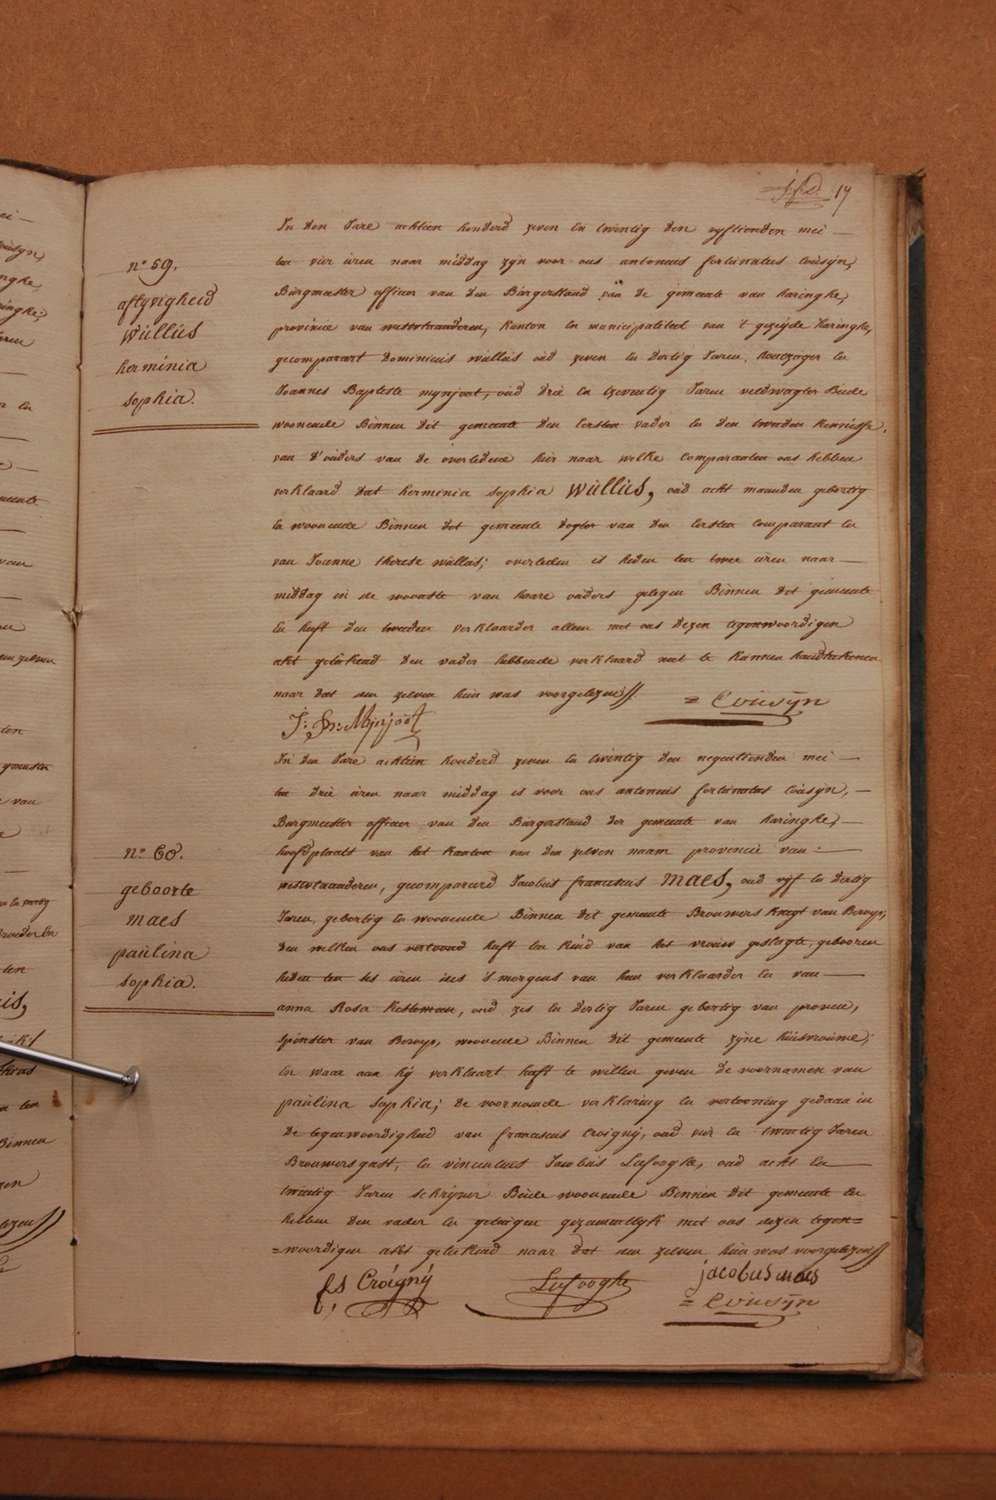 17
n° 59.
aflyvigheid
Wullus
herminia
sophia.
In den Jare achtien honderd zeven en twintig den vyftienden mei
ten vier uren naar middag zyn voor ons antonius fortunatus Cousyn,
Burgmeester officier van den Burgerstand van de gemeente van haringhe,
provincie van westvlaanderen, kanton en municipaliteit van 't gezeijde haringhe,
gecomparart dominicus wullus oud zeven en dertig Jaren, houtzager en
Joannes Baptiste mynjoot, oud drie en tzeventig Jaren veldwagter Beide
woonende Binnen dit gemeente den Eersten vader en den tweeden kennisse
van d'ouders van de overledene hier naar welke comparanten ons hebben
verklaard dat hermenia sophia Wullus, oud acht maanden gebortig
en woonende Binnen dit gemeente dogter van den Eersten Comparant en
van Joanne therese wallais; overleden is heden ten twee uren naar
middag in de woonste van haare ouders gelegen Binnen dit gemeente
En heeft den tweeden verklaarder alleen met ons dezen tegenwoordigen
akt geteekend den vader hebbende verklaard niet te kunnen handteekenen
naar dat den zelven hun was voorgelezen //
= Cousijn
J: Bte: Mynjoot
n° 60.
geboorte
maes
paulina
sophia.
In den Jare achtien honderd zeven en twintig den negentienden mei
ten drie uren naar middag is voor ons antonius fortunatus cousijn,
Burgmeester officier van den Burgerstand der gemeente van haringhe,
hoofdplaats van het kanton van den zelven naam provincie van
westvlaanderen, gecomparerd Jacobus franciscus maes, oud vyf en dertig
Jaren, gebortig en woonende Binnen dit gemeente Brouwers knegt van Beroep,
den welken ons vertoond heeft een kind van het vrouw geslagte, gebooren
heden ten ses uren ses 's morgens van hem verklaarder en van
anna Rosa kesteman, oud zes en dertig Jaren gebortig van proven,
spinster van Beroep, woonende Binnen dit gemeente zyne huisvrouwe;
en waar aan hij verklaart heeft te willen geven de voornamen van
paulina sophia; de voornoemde verklaring en vertooning gedaan in
de tegenwoordigheid van franciscus Croigny, oud vier en twintig Jaren
Brouwersgast, en vincentius Jacobus Lafooghe, oud acht en
twintig Jaren schryver Beide woonende Binnen dit gemeente en
hebben den vader en getuigen gezamentlyk met ons dezen tegen=
=woordigen akt geteekend naar dat den zelven hun was voorgelezen //
fs Croigny
Lafooghe
jacobus maes
= Cousijn